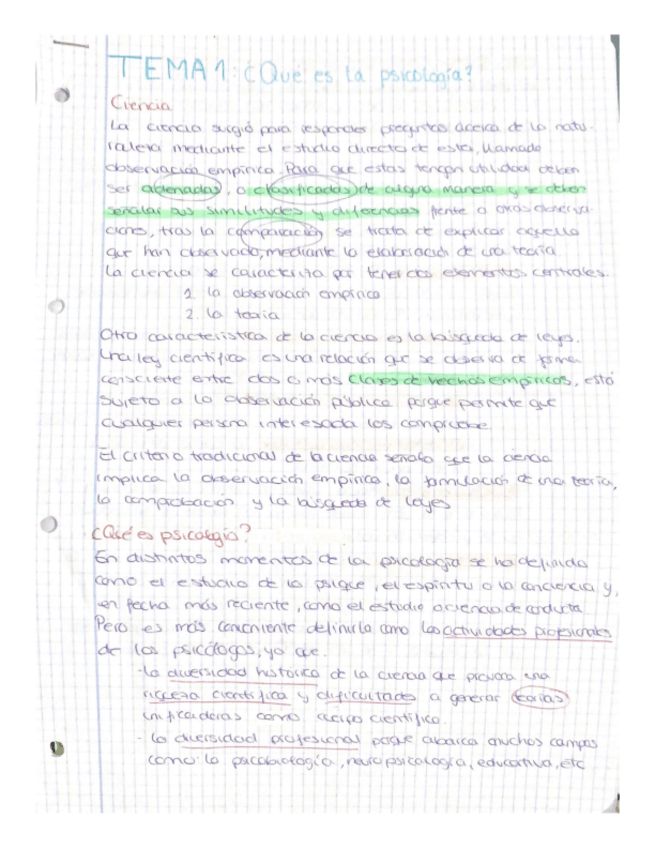 TEMA 1: ¿Qué es la psicología?
Ciencia
La ciencia surgió para responder preguntas acerca de la natu-
raleza mediante el estudio directo de esta, llamado
observación empírica. Para que estas tengan utilidad deben
ser ordenadas, o clasificadas de alguna manera y se deben
señalar sus similitudes y diferencias frente a otras observa-
ciones, tras la comparación se trata de explicar aquello
que han observado, mediante la elaboración de una teoría.
La ciencia se caracteriza por tener dos elementos centrales.
1. la observación empírica
2. la teoría
Otra característica de la ciencia es la búsqueda de leyes.
Una ley científica es una relación que se observa de forma
consciente entre dos o más clases de hechos empíricos, está
sujeto a la observación pública porque permite que
cualquier persona interesada los compruebe
El criterio tradicional de la ciencia señala que la ciencia
implica la observación empírica, la formulación de una teoría,
la comprobación y la búsqueda de leyes
¿Qué es psicología?
En distintos momentos de la psicología se ha definido
como el estudio de la psique, el espíritu o la conciencia y,
en fecha más reciente, como el estudio o ciencia de conducta.
Pero es más conveniente definirla como las actividades profesionales
de los psicólogos, ya que:
- la diversidad histórica de la ciencia que provoca una
riqueza científica y dificultades a generar teorías
unificadoras como cuerpo científico.
- la diversidad profesional porque abarca muchos campos
como: la psicobiología, neuropsicología, educativa, etc